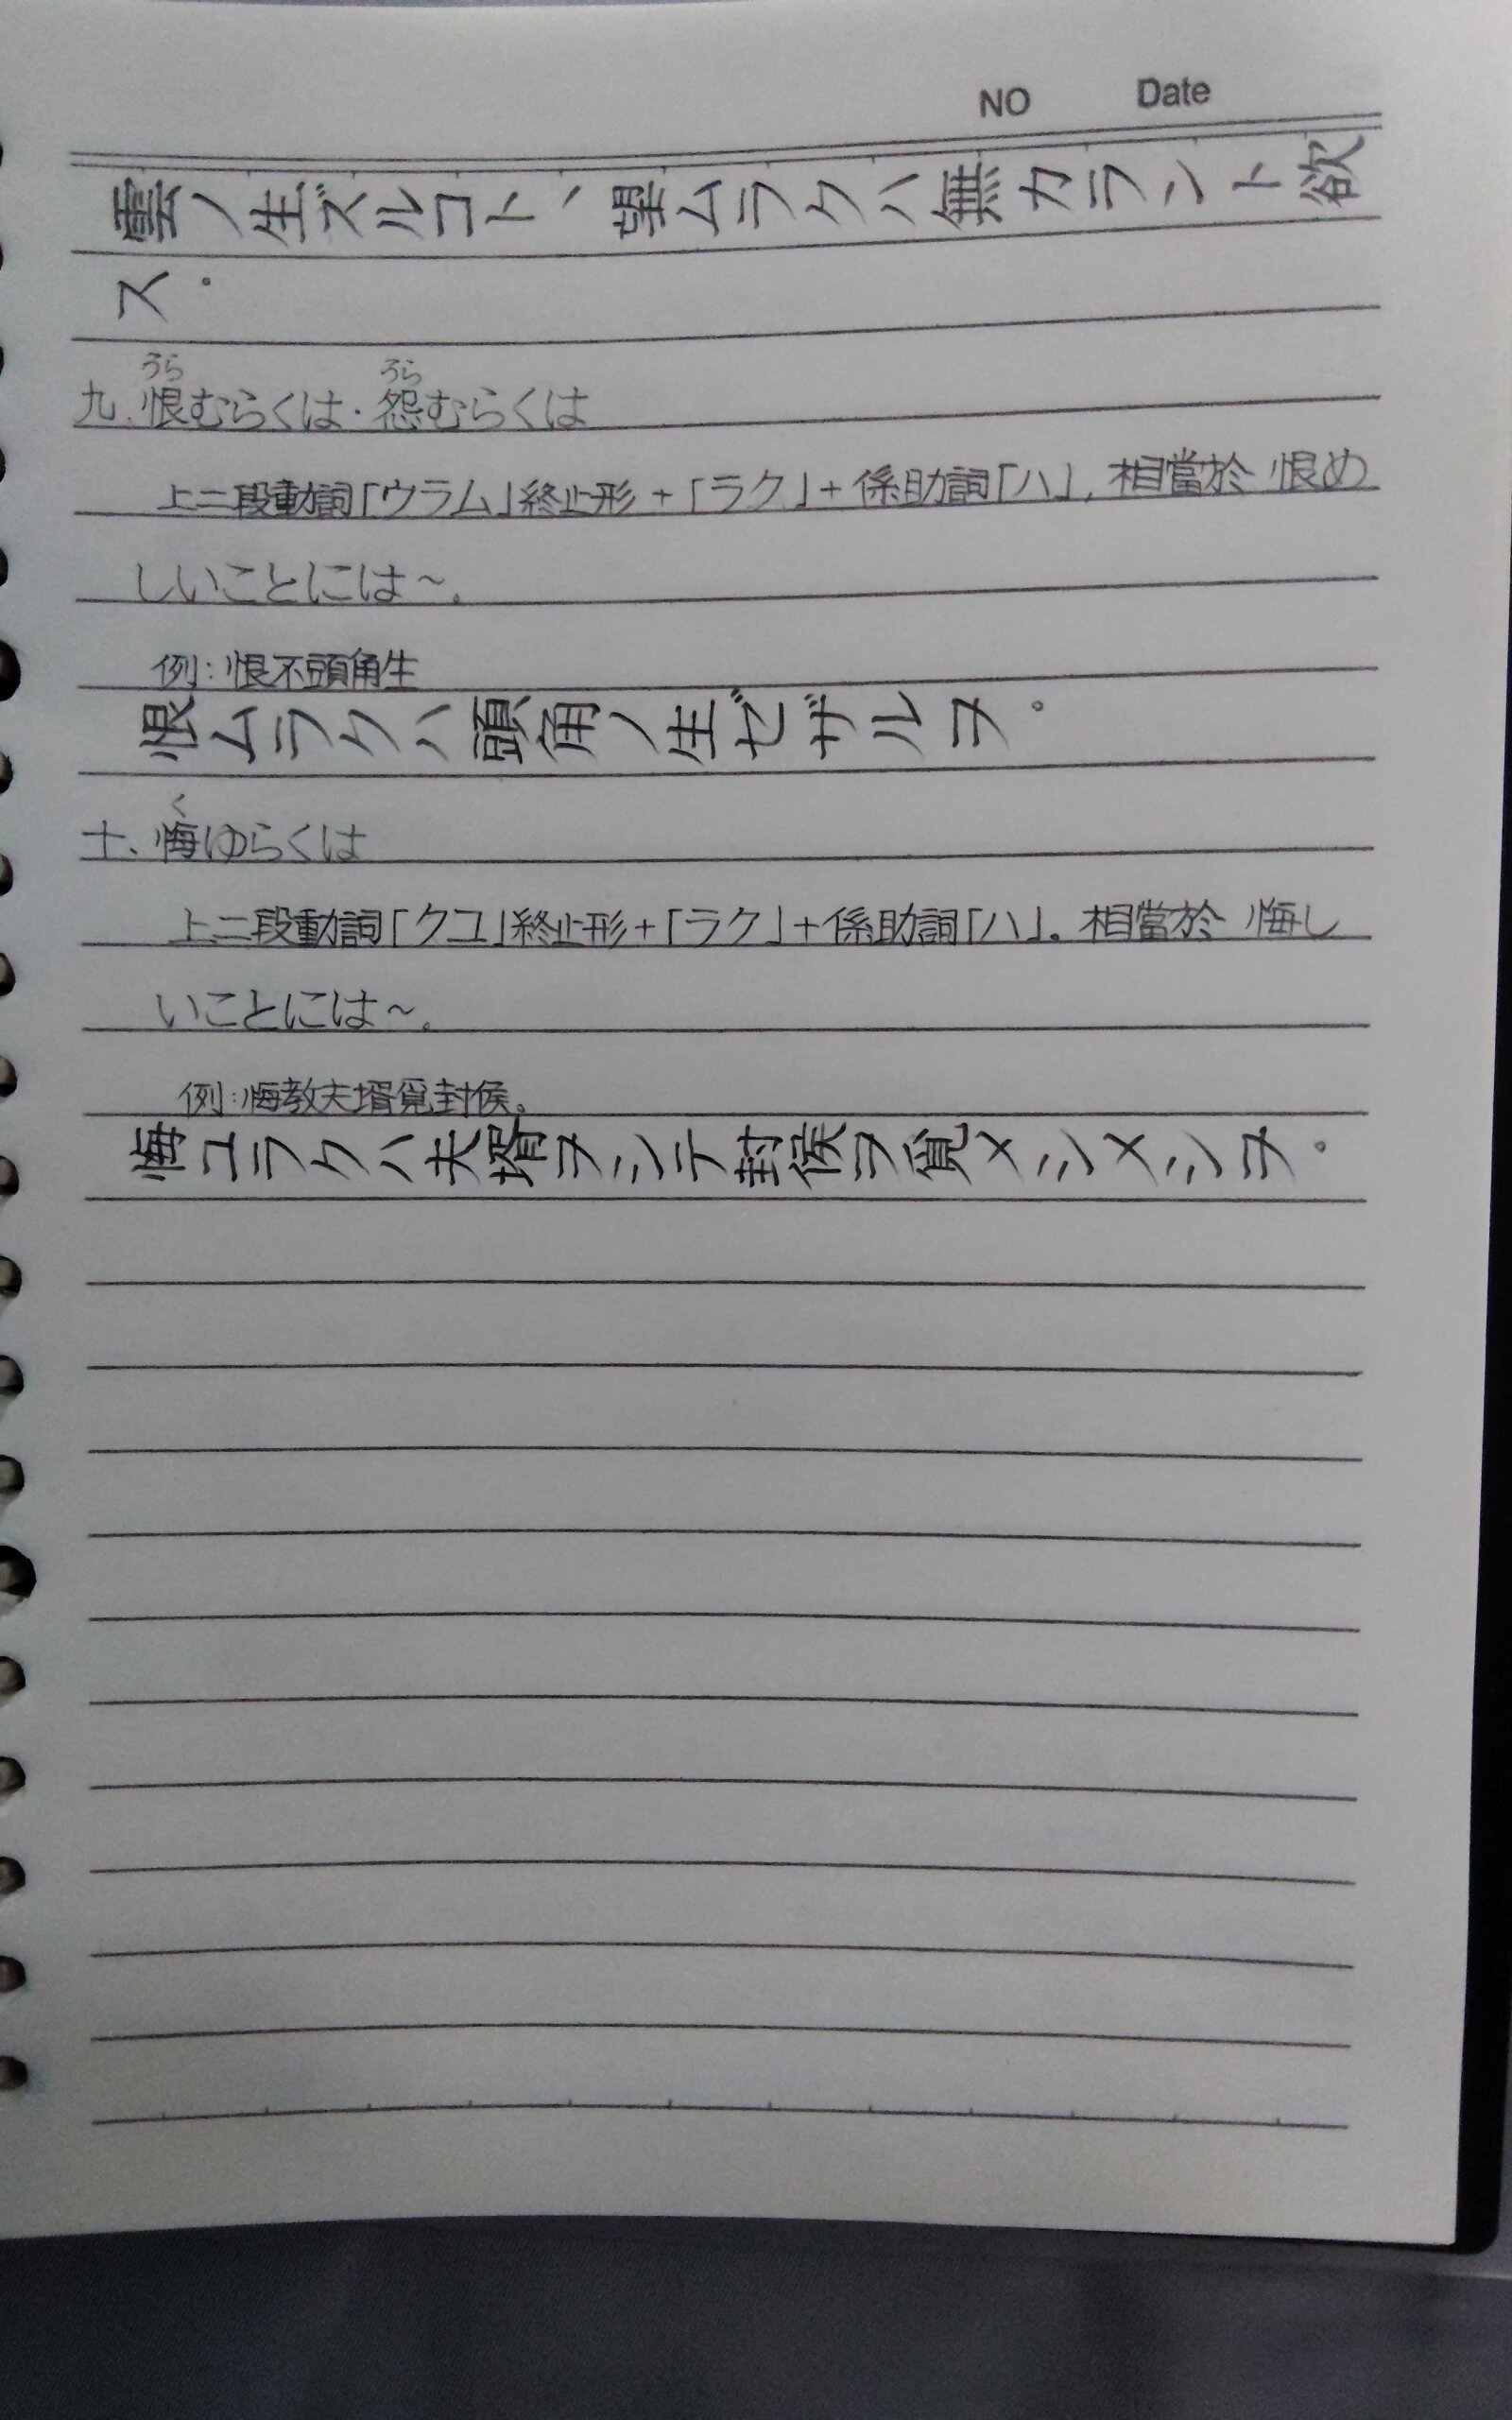 NO Date
雲ノ生ズルコト、望ムラクハ無カラント欲
ス。
うら うら
九.恨むらくは・怨むらくは
上二段動詞「ウラム」終止形+「ラク」+係助詞「ハ」,相當於 恨め
しいことには~。
例:恨不頭角生
恨ムラクハ頭角ノ生ゼザルヲ。
く
十、悔ゆらくは
上二段動詞「クユ」終止形+「ラク」+係助詞「ハ」。相當於 悔し
いことには~。
例:悔教夫壻覓封侯。
悔ユラクハ夫壻ヲシテ封侯ヲ覓メシメシヲ。